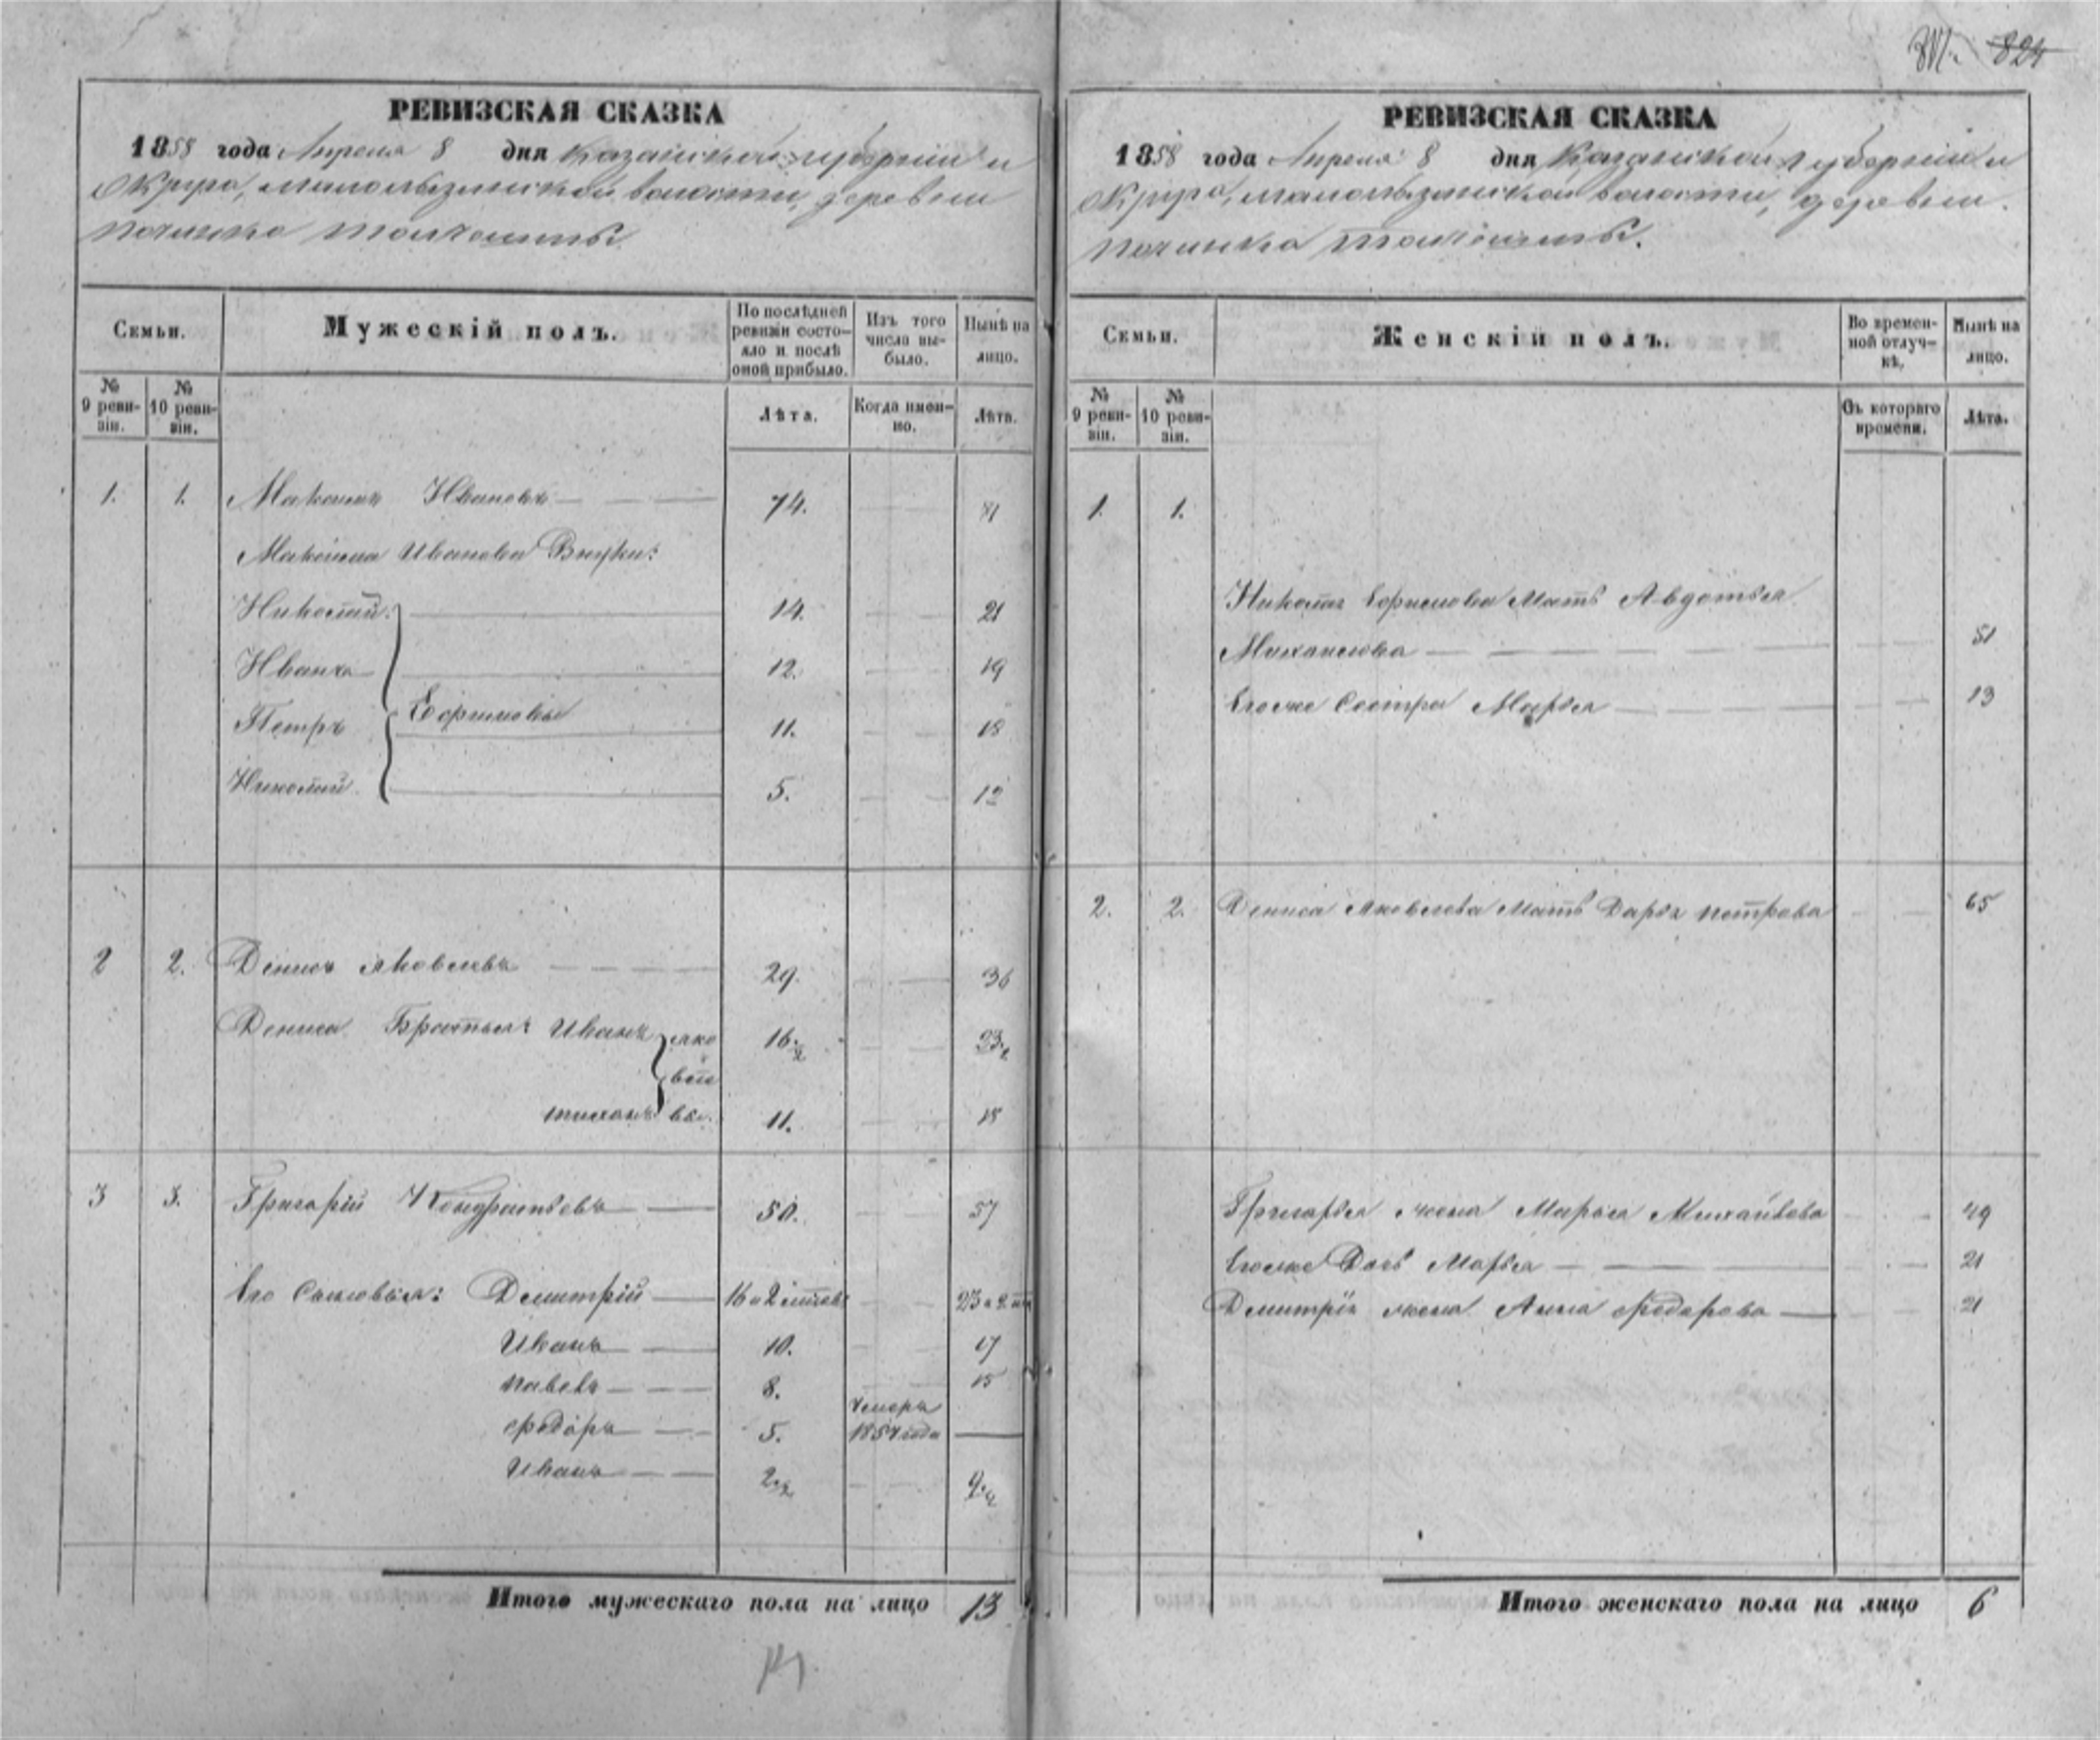 824
РЕВИЗСКАЯ СКАЗКА
1858 года Апреля 8 дня Казанской губернии и
Округа, волости, деревни
починка
Семьи.
Мужескій полъ.
По послѣдней ревизіи состо-яло и послѣ оной прибыло.
Изъ того числа вы-было.
Нынѣ на лицо.
№ 9 реви-зіи.
№ 10 реви-зіи.
Лѣта.
Когда имен-но.
Лѣта.
1. 1. Максимъ Ивановъ 74. 81
Максима Иванова Внуки:
Николай 14. 21
Иванъ 12. 19
Петръ Ефимовы 11. 18
Николай 5. 12
2 2. Денисъ Яковлевъ 29. 36
Дениса Братья: Иванъ Яко 16.½ 23.½
вле
Тихонъ вы. 11. 18
3 3. Григорій Кондратьевъ 50. 57
Его Сыновья: Дмитрій 16 и 2 23 и 2
Иванъ 10. 17
Павелъ 8. 15
Федоръ 5. Умеръ 1854 года
Иванъ 2.½ 9.½
Итого мужескаго пола на лицо 13
РЕВИЗСКАЯ СКАЗКА
1858 года Апреля 8 дня Казанской губерніи и
Округа, волости, деревни
починка
Семьи.
Женскій полъ.
Во времен-ной отлуч-кѣ.
Нынѣ на лицо.
№ 9 реви-зіи.
№ 10 реви-зіи.
Съ котораго времени.
Лѣта.
1. 1.
Николая Ефимова Мать Авдотья
Михайлова 51
Егоже Сестра Марья 13
2. 2. Дениса Яковлева Мать Дарья Петрова 65
Григорья жена Марья Михайлова 49
Егоже Дочь Марья 21
Дмитрія жена Анна Федорова 21
Итого женскаго пола на лицо 6